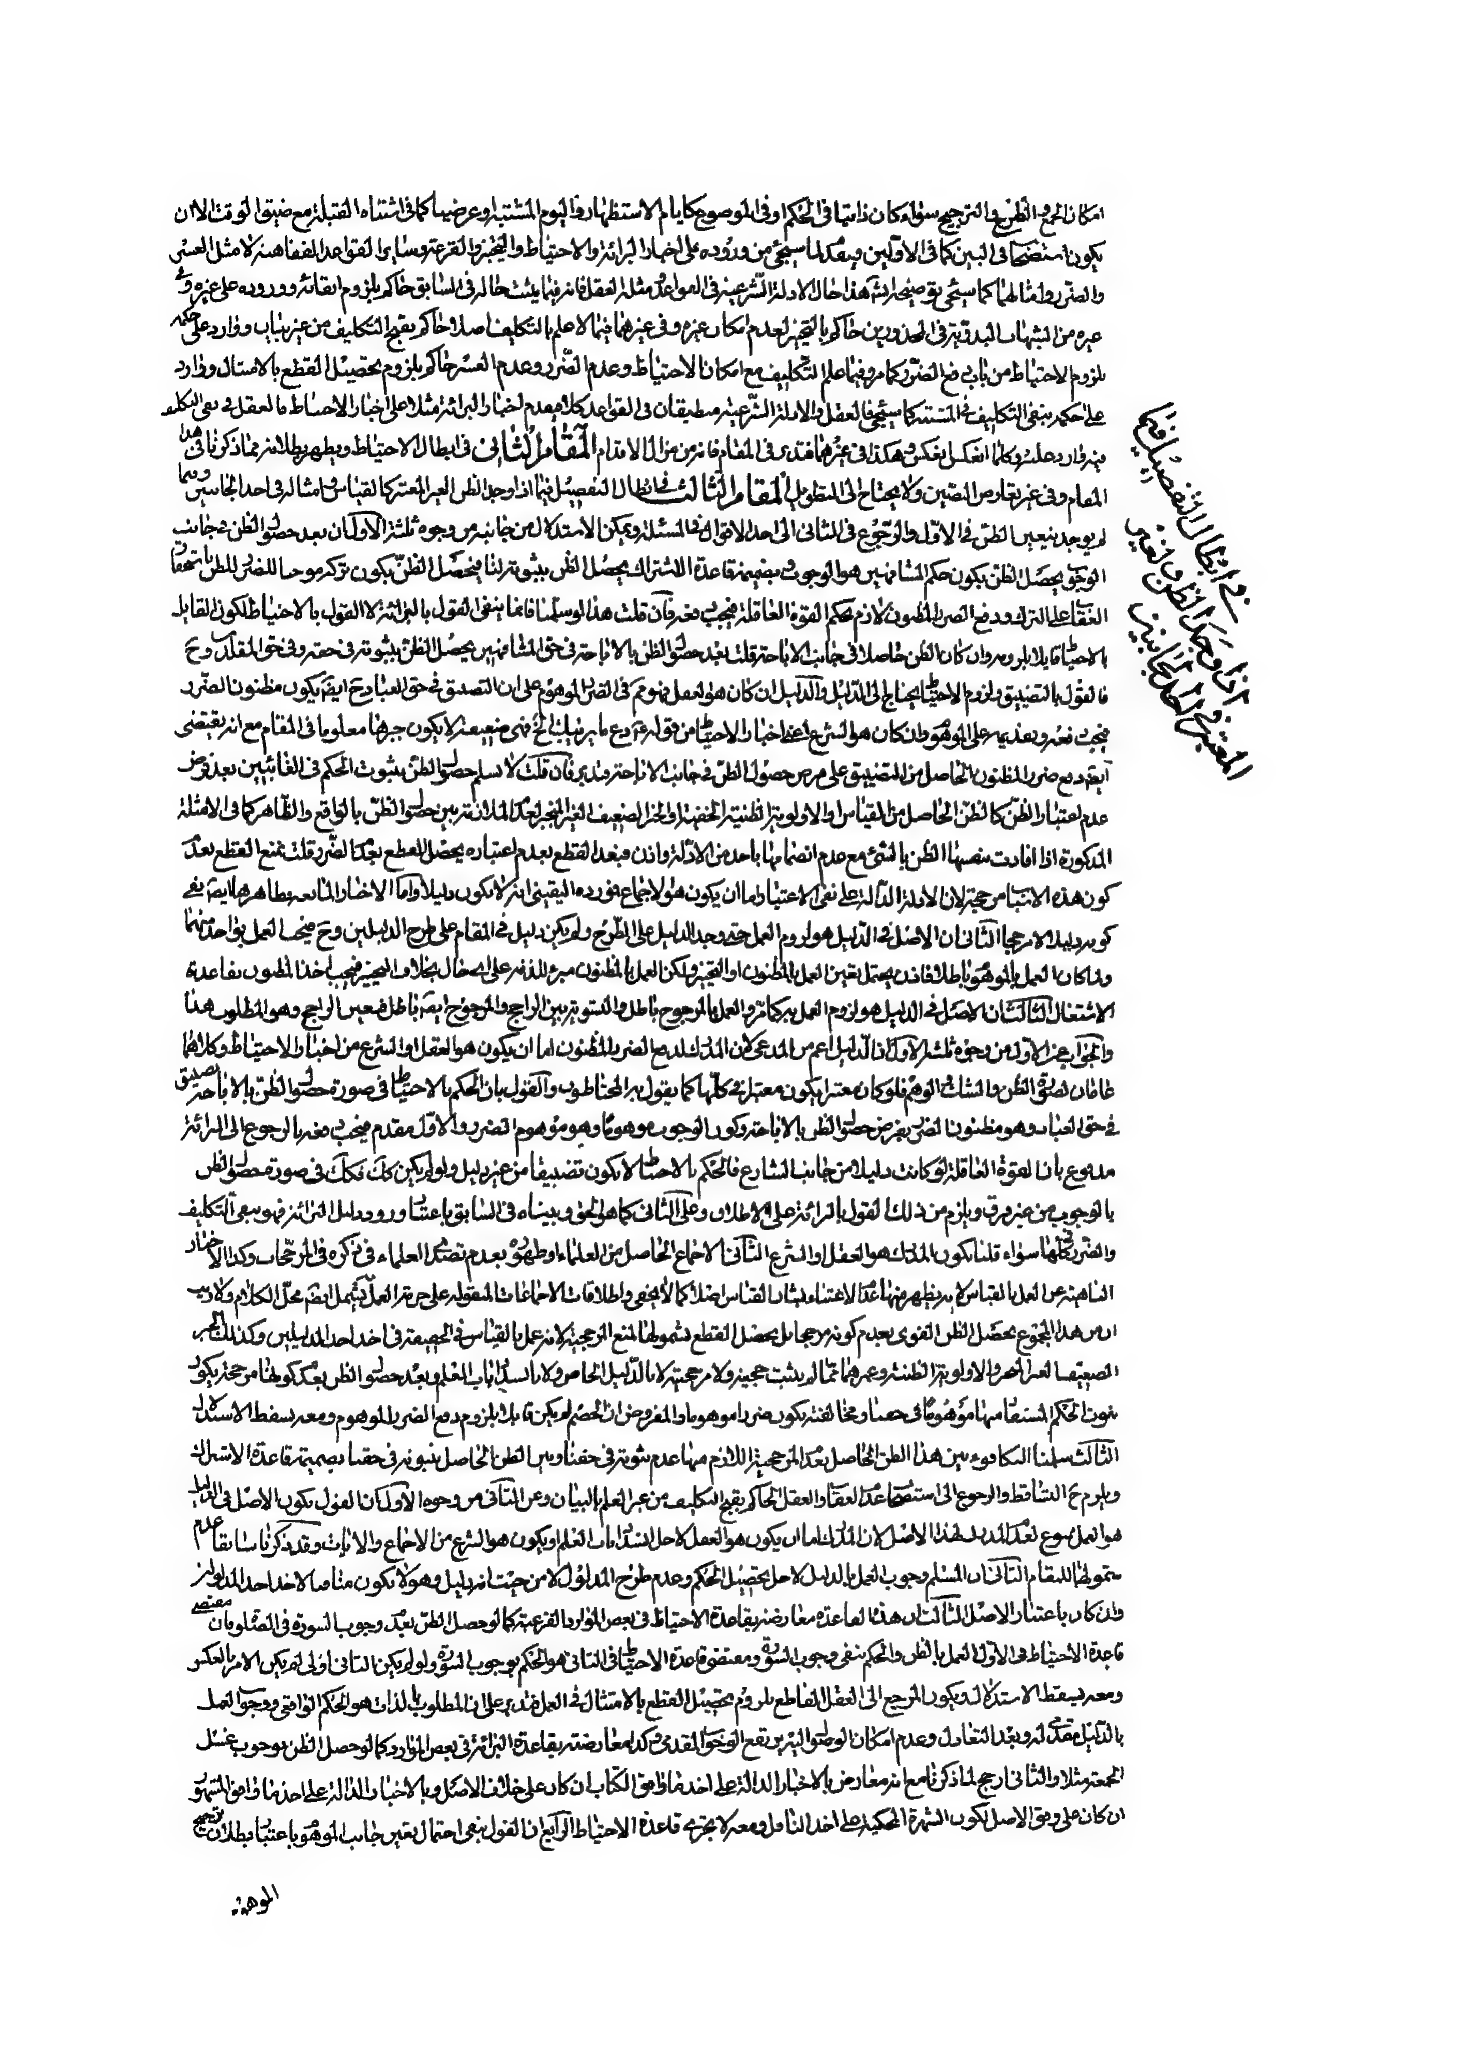 امكان الجمع والطرح والترجيح سواء كان ذاتيا فى الحكم او فى الموضوع كايام الاستظهار واليوم المشتبه او عرضيا كما فى اشتباه القبلة مع ضيق الوقت الا ان
يكون استصحابا فى البين كما فى الاولين فيقدم لما سيجئ من وروده على اخبار البرائة والاحتياط والتخيير والقرعة وساير القواعد الفقاهية لا مثل العسر
والضرر وامثالهما كما سيجئ توضيحه هذا حال الادلة الشرعية فى المواعد مثله العقل فانه فيما يثبت حاله فى السابق حاكم بلزوم ابقائه ووروده على غيره وفى
غيره من الشبهات البدوية فى المحذورين حاكم بالتخيير لعدم امكان غيره وفى غيرهما فيما لا علم بالتكليف اصلا حاكم بقبح التكليف من غير بيان ووارد على حكمه
بلزوم الاحتياط من باب دفع الضرر كما مر وفيما علم التكليف مع امكان الاحتياط وعدم الضرر وعدم العسر حاكم بلزوم تحصيل القطع بالامتثال ووارد
على حكمه بنفى التكليف فى المستند كما سيجئ فالعقل والادلة الشرعية متطبقان فى القواعد كلا فيقدم اخبار البرائة مثلا على اخبار الاحتياط فالعقل فى نفى التكليف
فيه وارد عليه وكلما انعكس يعكس وهكذا فى غيرهما فتدبر فى المقام فانه من مزال الاقدام المقام الثانى فى ابطال الاحتياط ويظهر بطلانه مما ذكرنا فى هذا
المقام وفى غير تعارض النصين ولا يحتاج الى التطويل المقام الثالث فى ابطال التفصيل فيما اذا وجد الظن الغير المعتبر كالقياس وامثاله فى احد الجانبين وفيما
لم يوجد بتعيين الظن فى الاول والرجوع فى الثانى الى احد الاقوال فى المسئلة ويمكن الاستدلال من جانبه من وجوه ثلثة الاول ان بعد حصول الظن فى جانب
الوجوب يحصل الظن بكون حكم المشافهين هو الوجوب وبضميمة قاعدة الاشتراك يحصل الظن بثبوته لنا فيحصل الظن بكون تركه موجبا للضرر للظن باستحقاق
العقاب على الترك ودفع الضرر المظنون لازم بحكم القوة العاقلة فيجب دفعه فان قلت هذا لو سلمنا فانما ينفى القول بالبرائة لا القول بالاحتياط لكون القايل
بالاحتياط قايلا بلزومه وان كان الظن حاصلا فى جانب الاباحة قلت بعد حصول الظن بالاباحة فى حق المشافهين يحصل الظن بثبوته فى حقه وفى حق المقلد وح
فالقول بالتضييق ولزوم الاحتياط يحتاج الى الدليل والدليل ان كان هو العقل فهو حكم فى الضرر الموهوم على ان التصديق فى حق العباد ح ايضا يكون مظنون الضرر
فيجب دفعه وتقديمه على الموهوم وان كان هو الشرع اعنى اخبار الاحتياط من قوله ع دع ما يريبك الخ فهى ضعيفة لا يكون جبرها معلوما فى المقام مع انه يقتضى
ايضا دفع ضرر المظنون الحاصل من التضييق على فرض حصول الظن فى جانب الاباحة فتدبر فان قلت لا نسلم حصول الظن بثبوت الحكم فى الغائبين بعد فرض
عدم اعتبار الظن كالظن الحاصل من القياس والاولوية الظنية الخفية والخبر الضعيف الغير المنجبر لعدم الملازمة بين حصول الظن بالواقع والظاهر كما فى الامثلة
المذكورة اذا افادت بنفسها الظن بالشئ مع عدم انضمامها باحد من الادلة واذن فبعد القطع بعدم اعتباره يحصل القطع بعدم الضرر قلت نمنع القطع بعدم
كون هذه الاسباب مرجحة لان الادلة الدالة على نفى الاعتبار اما ان يكون هو الاجماع فمورده اليقينى انه لا يكون دليلا واما الاخبار المانعة بظاهرها ايضا نفى
كونه دليلا لا مرجحا الثانى ان الاصل فى الدليل هو لزوم العمل حتى وجد الدليل على الطرح ولم يكن دليل فى المقام على طرح الدليلين وح فيجب العمل بواحد منهما
ولما كان العمل بالموهوم باطلا فاذن يحتمل تعين العمل بالمظنون او التخيير ولكن العمل بالمظنون مبرء للذمة على اى حال بخلاف التخيير فيجب اخذ المظنون بقاعدة
الاشتغال الثالث ان الاصل فى الدليل هو لزوم العمل به كما مر والعمل بالمرجوح باطل والتسوية بين الراجح والمرجوح ايضا باطل فتعين الراجح وهو المطلوب هذا
والجواب عن الاول من وجوه ثلثة الاول ان الدليل اعم من المدعى لان المدرك لدفع الضرر المظنون اما ان يكون هو العقل او الشرع من اخبار الاحتياط وكلاهما
عامان لصورتى الظن والشك والوهم فلو كان معتبرا يكون معتبرا فى كلها كما يقول به المحتاطون والقول بان الحكم بالاحتياط فى صورة حصول الظن بالاباحة تضييق
فى حق العباد وهو مظنون الضرر بفرض حصول الظن بالاباحة وكون الوجوب موهوما وهو موهوم الضرر والاول مقدم فيجب دفعه بالرجوع الى البرائة
مدفوع بان القوة العاقلة لو كانت دليلا من جانب الشارع فالحكم بالاحتياط لا يكون تضييقا من غير دليل ولو لم يكن كك فكك فى صورة حصول الظن
بالوجوب من غير فرق ويلزم من ذلك القول بالبرائة على الاطلاق وعلى الثانى كما هو الحق وبيناه فى السابق باعتبار ورود دليل البرائة فهو ينفى التكليف
والضرر فى كلها سواء قلنا بكون المدرك هو العقل او الشرع الثانى الاجماع الحاصل من العلماء او ظهوره بعدم تصدى العلماء فى ذكره فى المرجحات وكذا الاخبار
الناهية عن العمل بالقياس لانه يظهر منها عدم الاعتناء بشان القياس اصلا كما لا يخفى واطلاقات الاجماعات المنقولة على حرمة العمل يشمل ايضا محل الكلام ولا ريب
ان من هذا المجموع يحصل الظن القوى بعدم كونه مرجحا بل يحصل القطع لشمولها لمنع المرجحية لانه عمل بالقياس فى الحقيقة فى اخذ احد الدليلين وكذلك الخبر
الضعيف الغير المنجبر والاولوية الظنية وغيرهما مما لم يثبت حجيته ولا مرجحيته لا بالدليل الخاص ولا بانسداد باب العلم وبعد حصول الظن بعدم كونها مرجحة يكون
ثبوت الحكم المستفاد منها موهوما فى حقنا ومخالفته يكون ضررا موهوما والمفروض ان الخصم لم يكن قايلا بلزوم دفع الضرر الموهوم ومعه يسقط الاستدلال
الثالث سلمنا التكافوء بين هذا الظن الحاصل بعدم المرجحية اللازم منها عدم ثبوته فى حقنا وبين الظن الحاصل بثبوته فى حقنا بضميمة قاعدة الاشتراك
ويلزم ح التساقط والرجوع الى استصحاب عدم العقاب والعقل الحاكم بقبح التكليف من غير العلم والبيان وعن الثانى من وجوه الاول ان القول بكون الاصل فى الدليل
هو العمل ممنوع لعدم المدرك لهذا الاصل لان المدرك اما ان يكون هو العقل لاجل انسداد باب العلم او يكون هو الشرع من الاجماع والايات وقد ذكرنا سابقا عدم
شمولها للمقام الثانى ان المسلم وجوب العمل بالدليل لاجل تحصيل الحكم وعدم طرح المدلول لا من حيث انه دليل وهو لا يكون مناطا لاخذ احد المدلولين
وان كان باعتبار الاصل الثالث ان هذه القاعدة معارضة بقاعدة الاحتياط فى بعض الموارد الفرعية كما لو حصل الظن بعدم وجوب السورة فى الصلوة فان مقتضى
قاعدة الاحتياط فى الاول العمل بالظن والحكم بنفى وجوب السورة ومقتضى قاعدة الاحتياط فى الثانى هو الحكم بوجوب السورة ولو لم يكن الثانى اولى لم يكن الامر بالعكس
ومعه يسقط الاستدلال ويكون المرجع الى العقل القاطع بلزوم تحصيل القطع بالامتثال فى العمل فتدبر على ان المطلوب بالذات هو الحكم الواقعى ووجوب العمل
بالدليل مقدمى له وبعد التعادل وعدم امكان الوصول اليه يرتفع الوجوب المقدمى وكذا معارضته بقاعدة البرائة فى بعض الموارد كما لو حصل الظن بوجوب غسل
الجمعة مثلا والثانى ارجح لما ذكرنا مع انه معارض بالاخبار الدالة على اخذ ما وافق الكتاب ان كان على خلاف الاصل وبالاخبار الدالة على اخذ ما وافق المشهور
ان كان على وفق الاصل لكون الشهرة المحكية على اخذ الناقل ومعه لا يجرى قاعدة الاحتياط الرابع ان القول بنفى احتمال تعين جانب الموهوم باعتبار بطلان ترجيح
الموهوم
فى ابطال التفصيل فيما
اذا وجد الظن الغير
المعتبر فى احد الجانبين